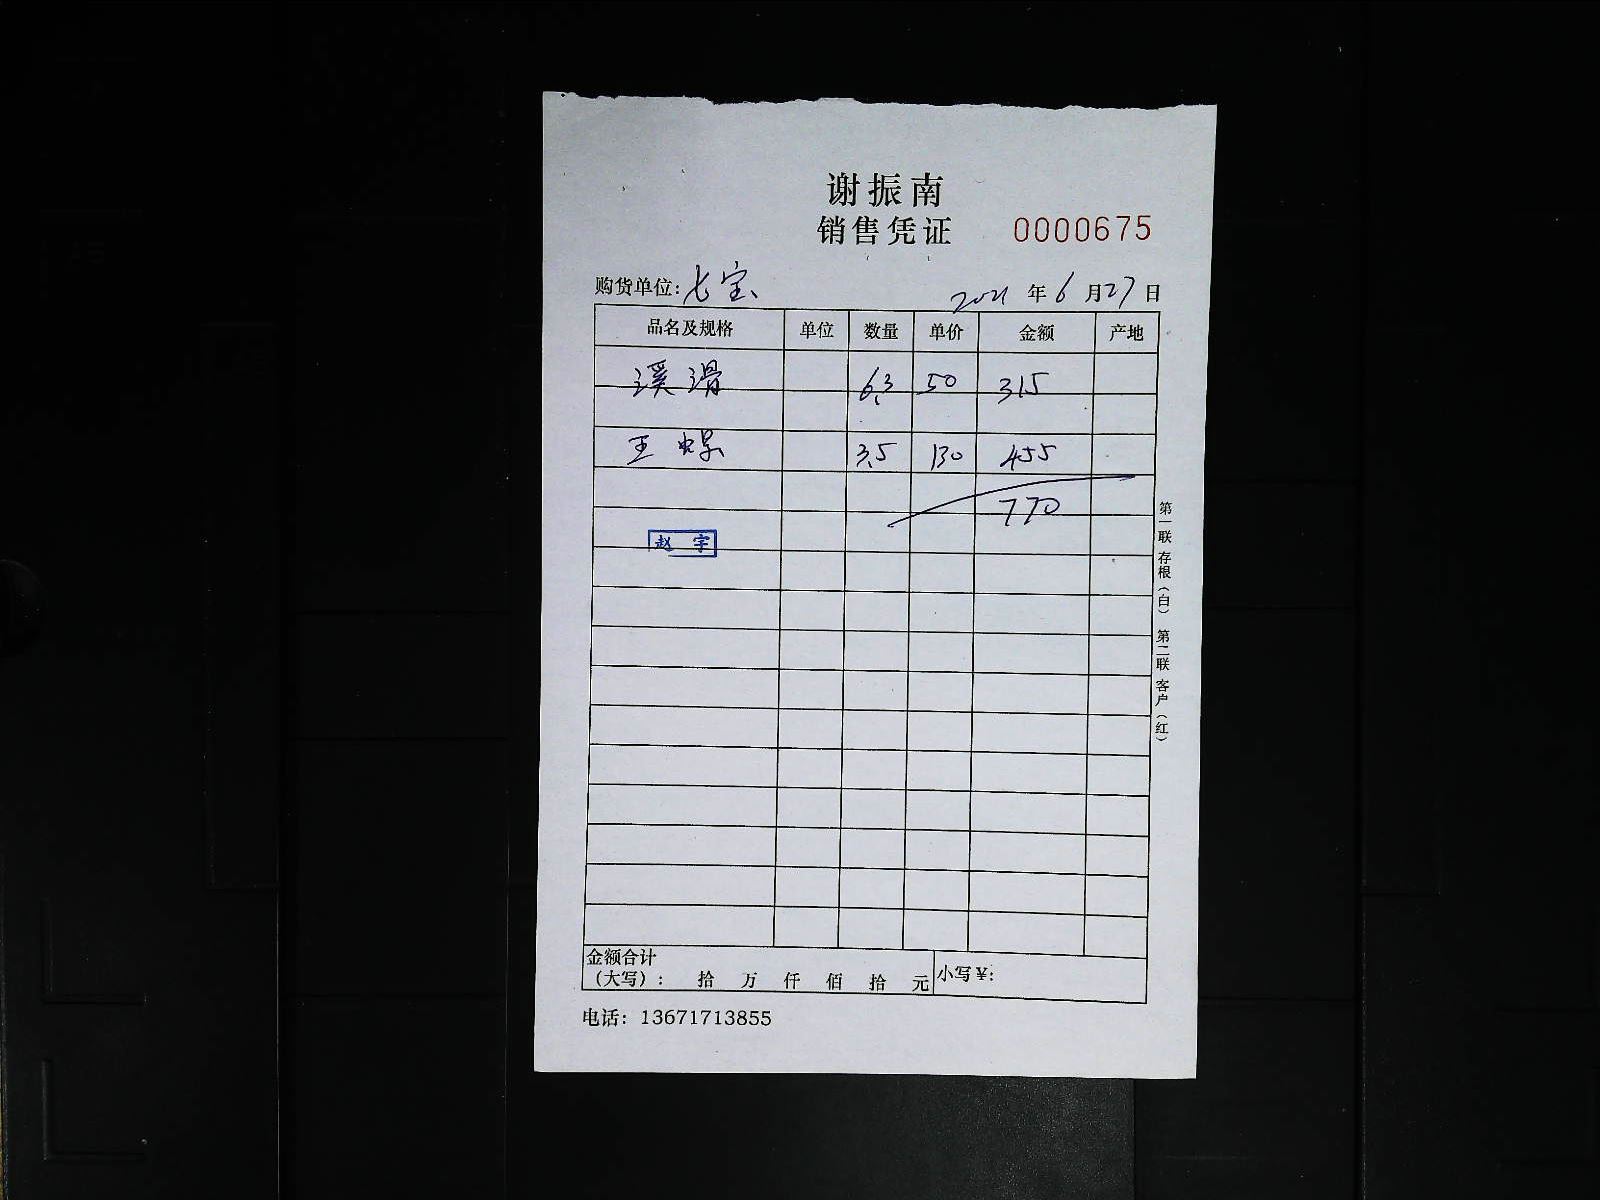 谢振南
销售凭证 0000675
购货单位: 七宝 2021 年 6 月 27 日
品名及规格 单位 数量 单价 金额 产地
溪滑 6.3 50 315
王螺 3.5 130 455
770
赵宇
金额合计
(大写): 拾 万 仟 佰 拾 元 小写¥:
电话: 13671713855
第一联 存根(白) 第二联 客户(红)